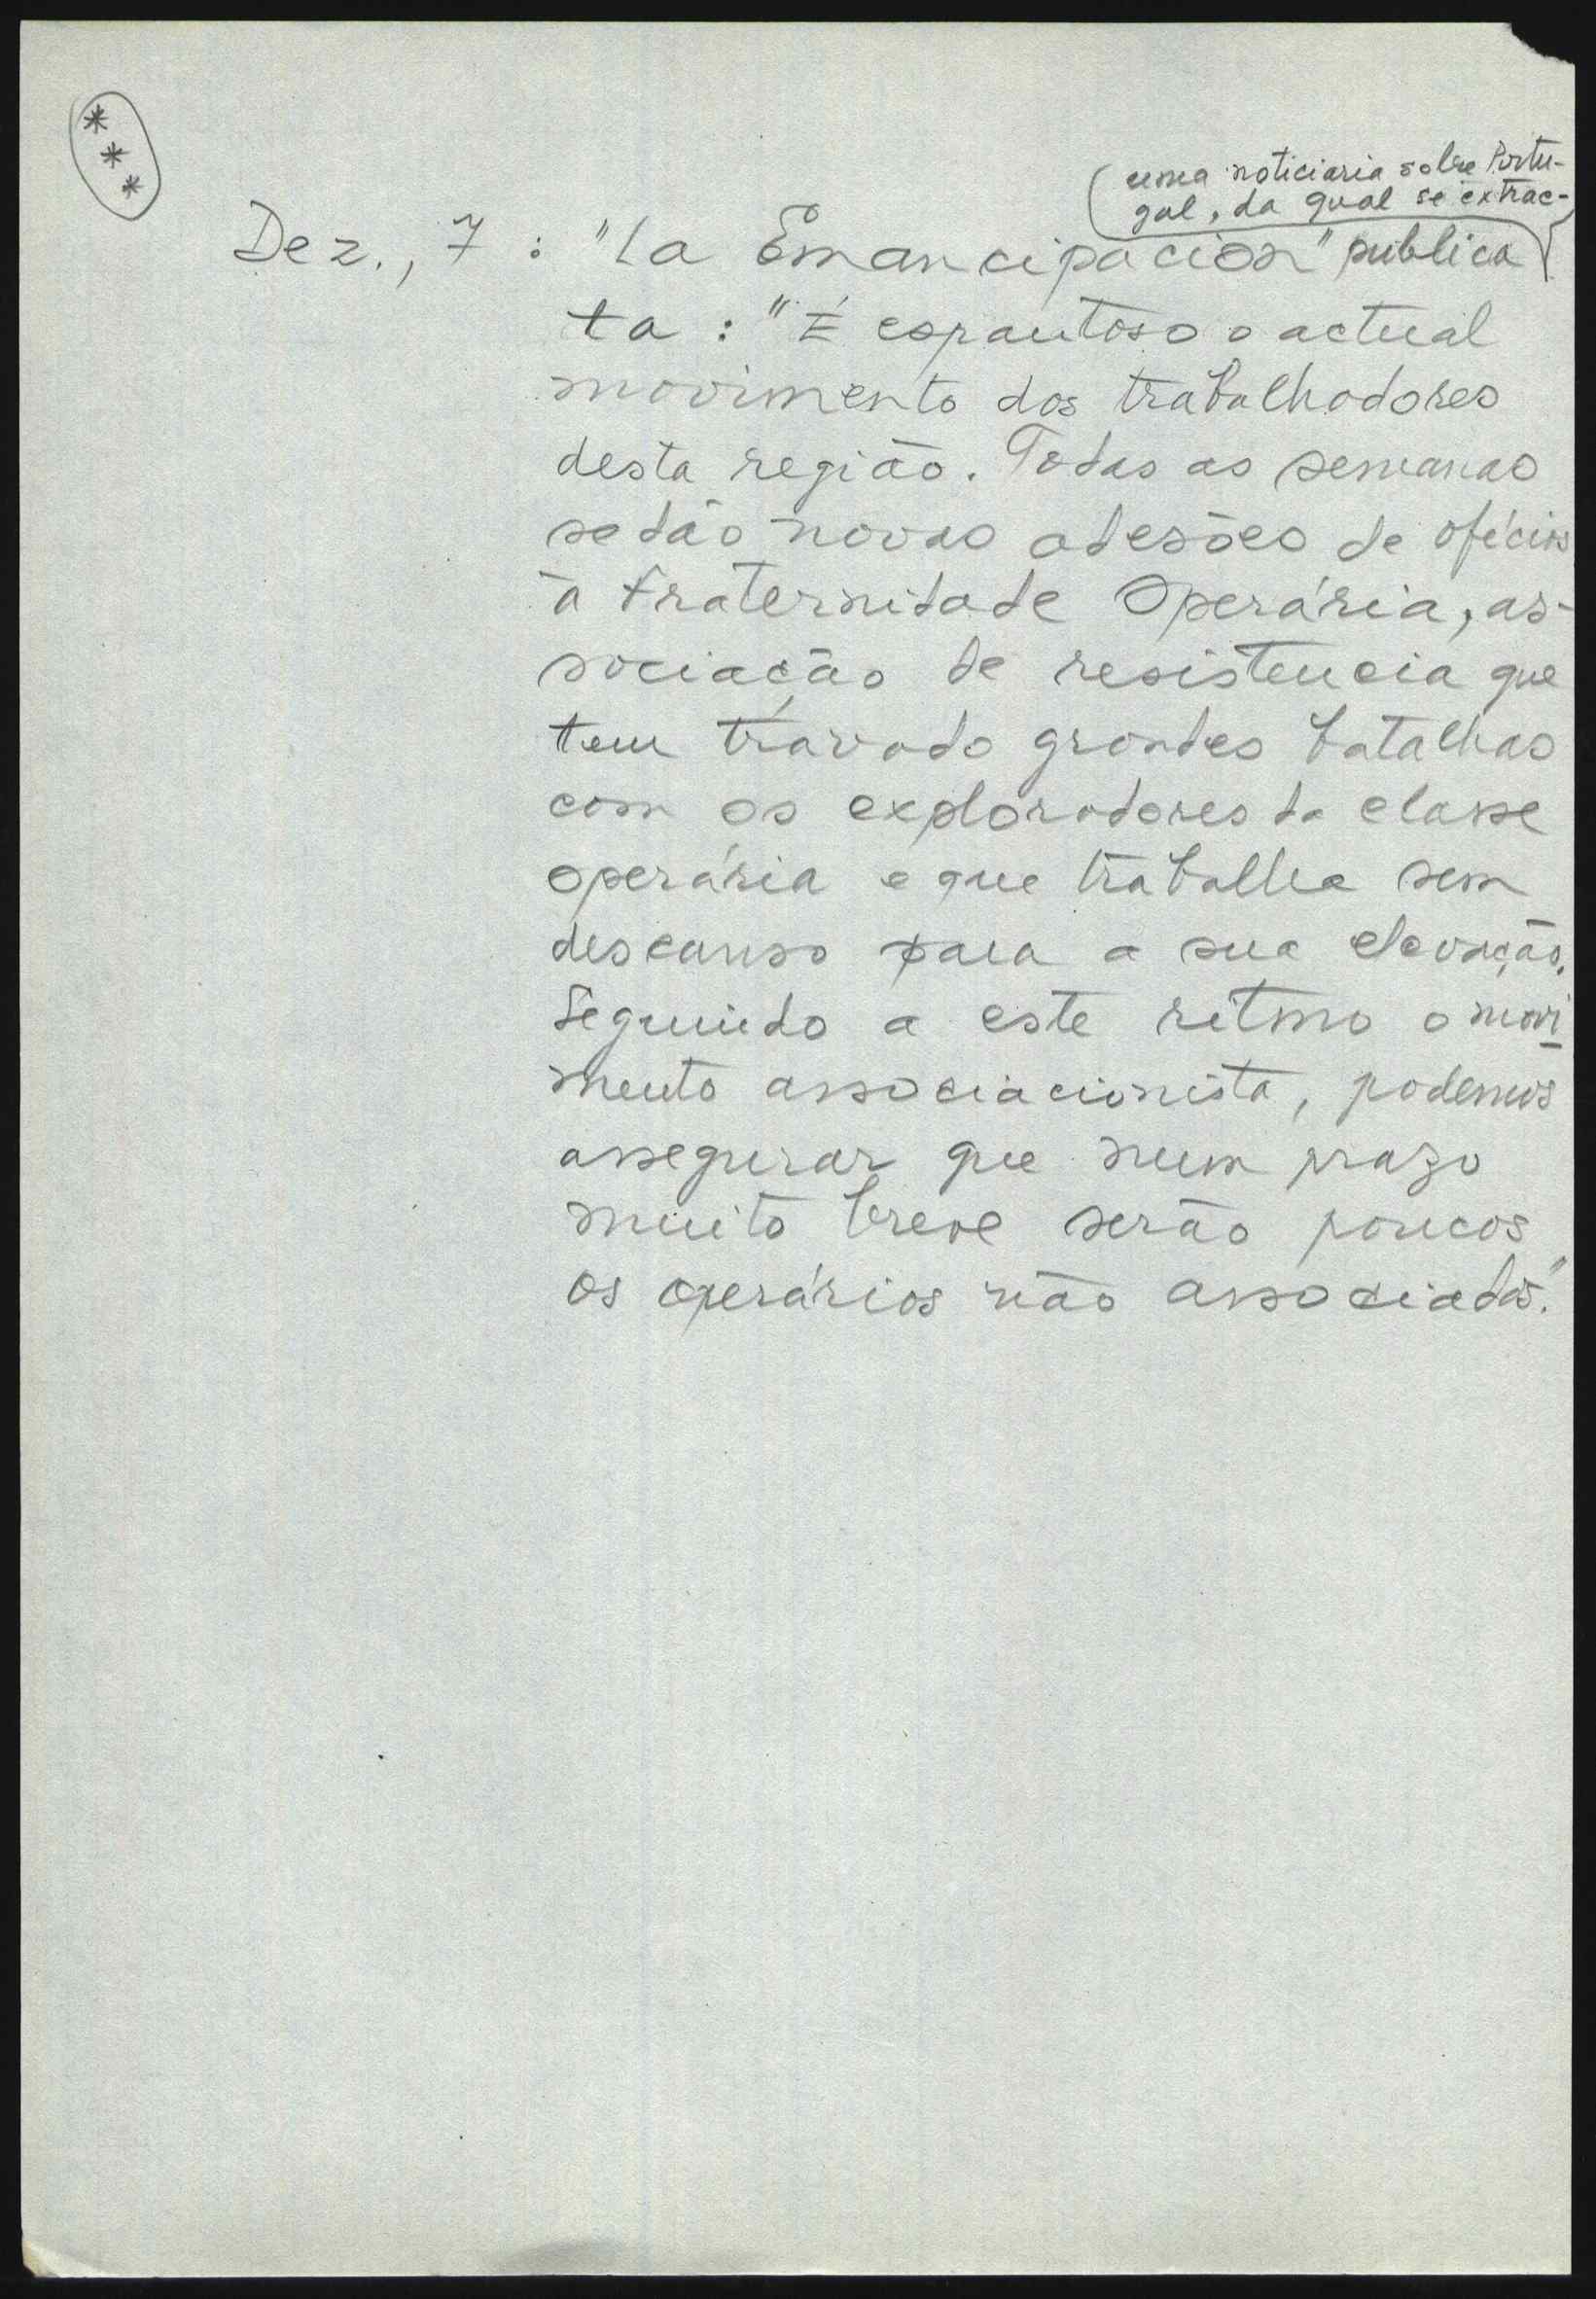 ***
uma noticiaria sobre Portu-
gal, da qual se extrac-
Dez., 7 : "La Emancipacion" publica
ta : "É espantoso o actual
movimento dos trabalhadores
desta região. Todas as semanas
se dão novas adesões de ofícios
à Fraternidade Operária, as-
sociação de resistencia que
tem travado grandes batalhas
com os exploradores da classe
operária e que trabalha sem
descanso para a sua elevação.
Seguindo a este ritmo o movi
mento associacionista, podemos
assegurar que num prazo
muito breve serão poucos
os operários não associados."